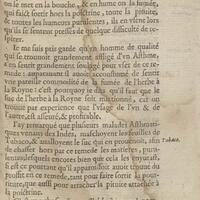 on se met en la bouche, & en hume on la fumée,
qui faict sortir hors la poictrine, toute la pituite,
& toutes les humeurs purulentes, ils en vsent lors
qu'ils se sentent pressés de quelque difficulté de re-
spirer.
Ie me suis pris garde qu'vn homme de qualité
qui se trouuoit grandement affligé d'vn Asthme,
s'en sentit grandement soulagé pour vser de ce re-
mede : apparauant il auoit accoustumé de sentir
vne pareille commodité de la fumée de l'herbe à
la Royne : c'est pourquoy ie dis qu'il faut que le
suc de l'herbe à la Royne soit mitionné, car on
trouue par experience que l'vsage de l'vn & de
l'autre, est asseuré, & profitable.
I'ay remarqué que plusieurs malades Asthmati-
ques venans des Indes, maschoyent les fueilles de
Tabaco, & auallioyent le suc qui en prouenoit, afin
de chasser hors par ce remede les matieres, puru-
lentes: desquels encores bien que cela les enyurast,
si est ce pourtant qu'il apparoissoit auoir trouué du
proffit en ce remede, tant pour faire sortir la pour-
riture, que aussi pour attacher la pituite attachée à
la poictrine.
Tabaco.